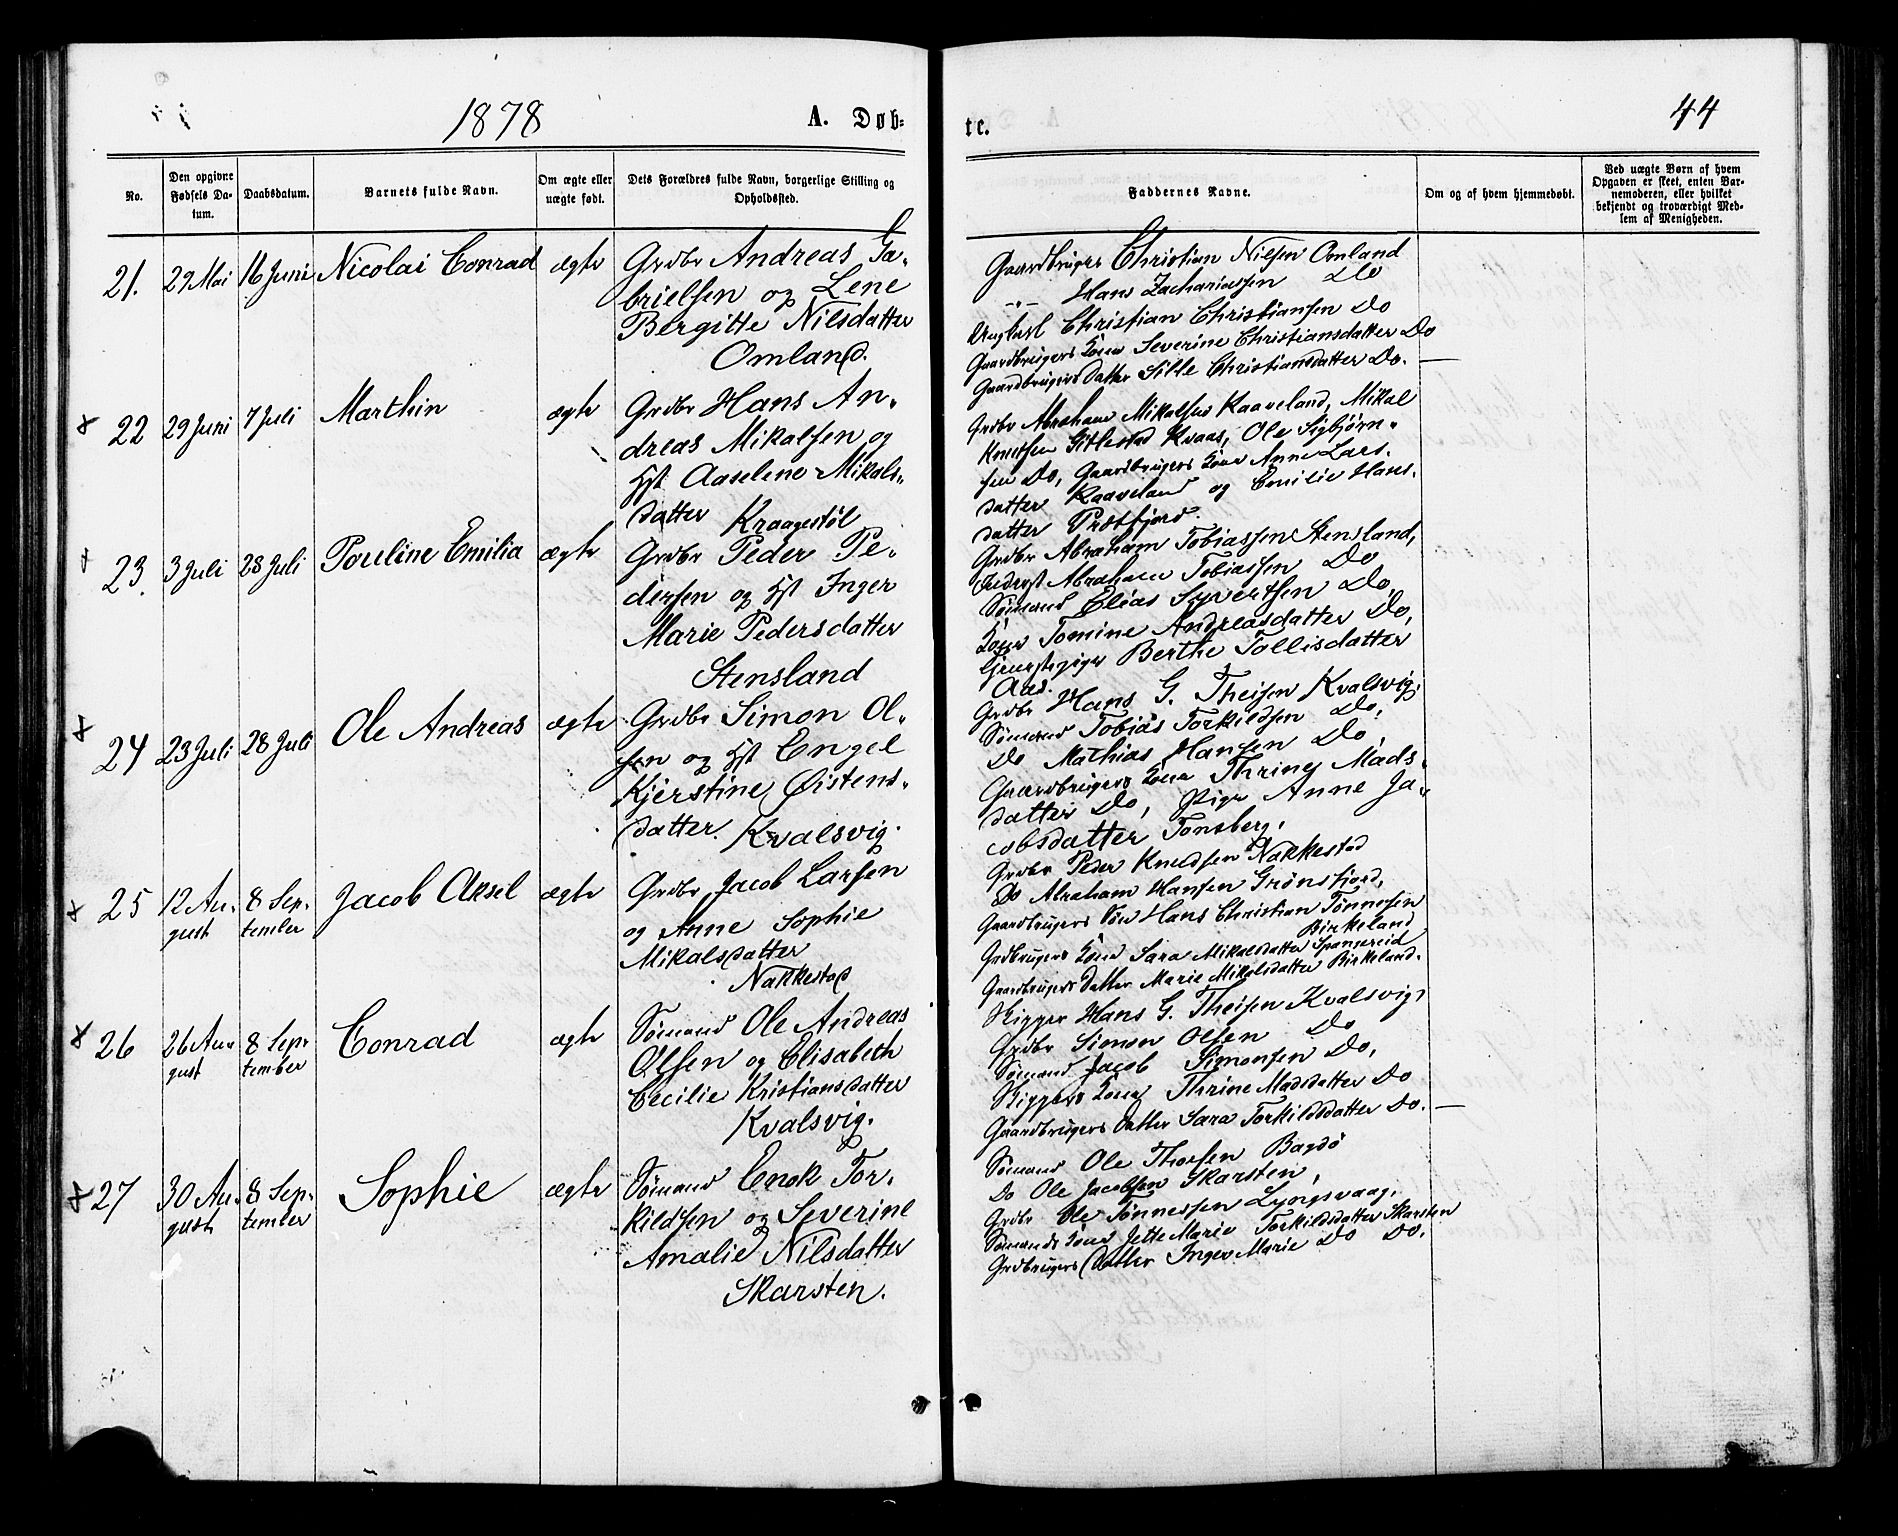 1878
A. Døb-
te.
44
No.
Den opgivne Fødsels Da-tum.
Daabsdatum.
Barnets fulde Navn.
Om ægte eller uægte født.
Dets Forældres fulde Navn, borgerlige Stilling og Opholdssted.
Faddernes Navne.
Om og af hvem hjemmedøbt.
Ved uægte Børn af hvem Opgaven er skeet, enten Bar-nemoderen, eller hvilket bekjendt og troværdigt Med-lem af Menigheden.
21. 29 Mai 16 Juni Nicolai Conrad ægte
Grdbr Andreas Ga-
brielsen og Lene
Bergitte Nilsdatter
Omland.
Gaardbruger Christian Nielsen Omland
-"- Hans Zachariassen Do
Ungkarl Christian Christiansen Do
Gaardbrugers Kone Severine Christiansdatter Do
Gaardbrugers Datter Sille Christiansdatter Do.
22 29 Juni 7 Juli Marthin ægte
Grdbr Hans An-
dreas Mikalsen og
Hst Aaselene Mikals-
datter Kraagestøl
Grdbr Abraham Mikalsen Kaaveland, Mikal
Knudsen Gitlestad Kvaas, Ole Sigbjørn-
sen Do, Gaardbrugers Kone Anne Lars-
datter Kaaveland og Emilie Hans-
datter Prestfjord.
23. 3 Juli 28 Juli Pouline Emilia ægte
Grdbr Peder Pe-
dersen og Hst Inger
Marie Pedersdatter
Stensland
Grdbr Abraham Tobiassen Stensland,
Abraham Tobiassen Do
Sømand Elias Syvertsen Do,
Kone Tomine Andreasdatter Do,
Berthe Tollisdatter
Aas.
24 23 Juli 28 Juli Ole Andreas ægte
Grdbr Simon Ol-
sen og Hst Engel
Kjerstine Øistens-
datter. Kvalsvig.
Grdbr Hans G. Theisen Kvalsvig,
Sømand Tobias Torkildsen Do,
Do Mathias Hansen Do,
Gaardbrugers Kone Thrine Mads-
datter Do, Pige Anne Ja-
cobsdatter Tonsberg.
25 12 Au-gust 8 Sep-tember Jacob Aksel ægte
Grdbr Jacob Larsen
og Anne Sophie
Mikalsdatter
Nakkestad
Grdbr Peder Knudsen Nakkestad
Do Abraham Hansen Grønsfjord,
Gaardbrugers Søn Hans Christian Tønnesen
Birkeland
Grdbrugers Kone Sara Mikalsdatter Spangereid
Gaardbrugers Datter Marie Mikalsdatter Birkeland.
26 26 Au-gust 8 Sep-tember Conrad ægte
Sømand Ole Andreas
Olsen og Elisabeth
Cecilie Kristiansdatter
Kvalsvig.
Skipper Hans G. Theisen Kvalsvig,
Grdbr Simon Olsen Do
Sømand Jacob Simonsen Do,
Skippers Kone Thrine Madsdatter Do
Gaardbrugers Datter Sara Torkildsdatter Do.
27 30 Au-gust 8 Sep-tember Sophie ægte
Sømand Enok Tor-
kildsen og Severine
Amalie Nilsdatter
Skarsten.
Sømand Ole Thorsen Bagdø
Do Ole Jacobsen Skarsten,
Grdbr Ole Tønnessen Lyngsvaag,
Sømands Kone Jette Marie Torkildsdatter Skarsten
Grdbrugers Datter Inger Marie Do Do.